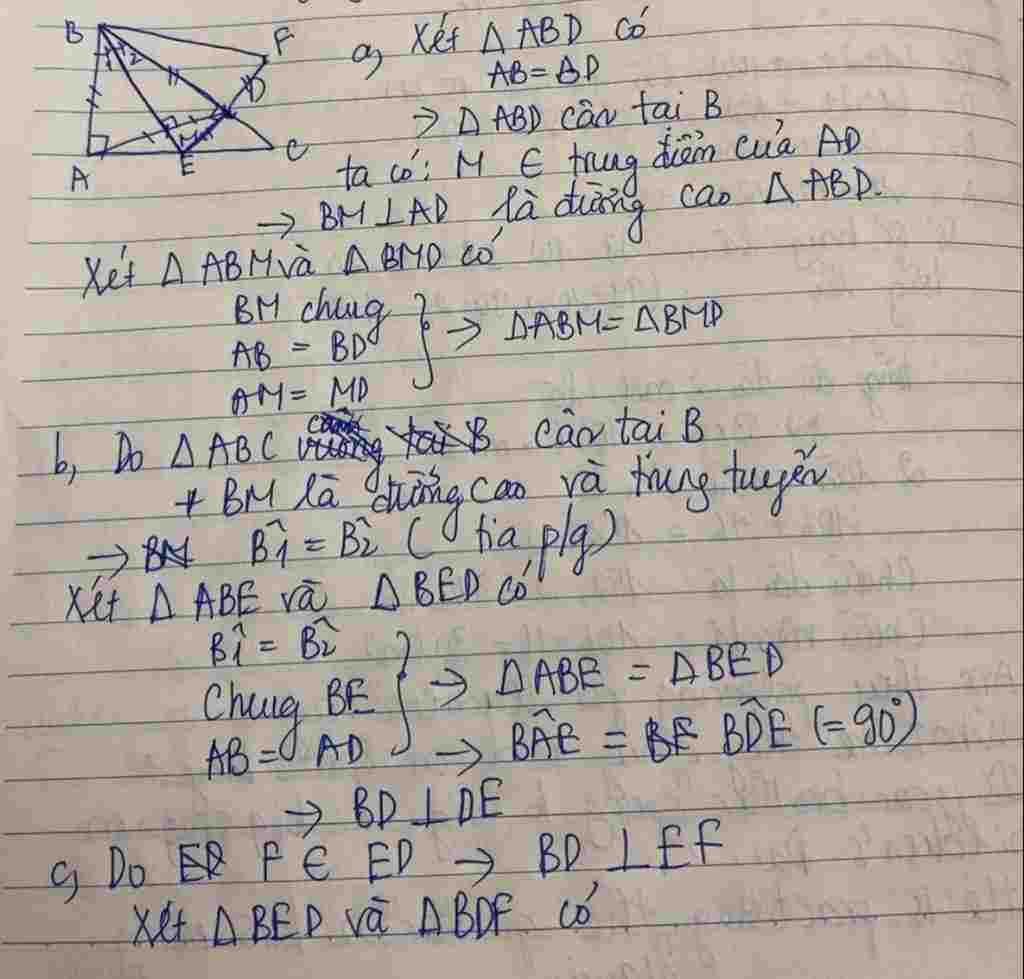 B
F
D
A
E
C
M
1
2
a, Xét Δ ABD có
AB = BD
→ Δ ABD cân tại B
ta có: M ∈ trung điểm của AD
→ BM ⊥ AD là đường cao Δ ABD.
Xét Δ ABM và Δ BMD có
BM chung
AB = BD
AM = MD
} → ΔABM = ΔBMD
b, Do Δ ABC cân tại B
+ BM là đường cao và trung tuyến
→ B̂1 = B̂2 ( tia p/g)
Xét Δ ABE và Δ BED có
B̂1 = B̂2
Chung BE
AB = AD
} → ΔABE = ΔBED
→ BÂE = BD̂E (= 90°)
→ BD ⊥ DE
c, Do F ∈ ED → BD ⊥ EF
Xét Δ BED và Δ BDF có